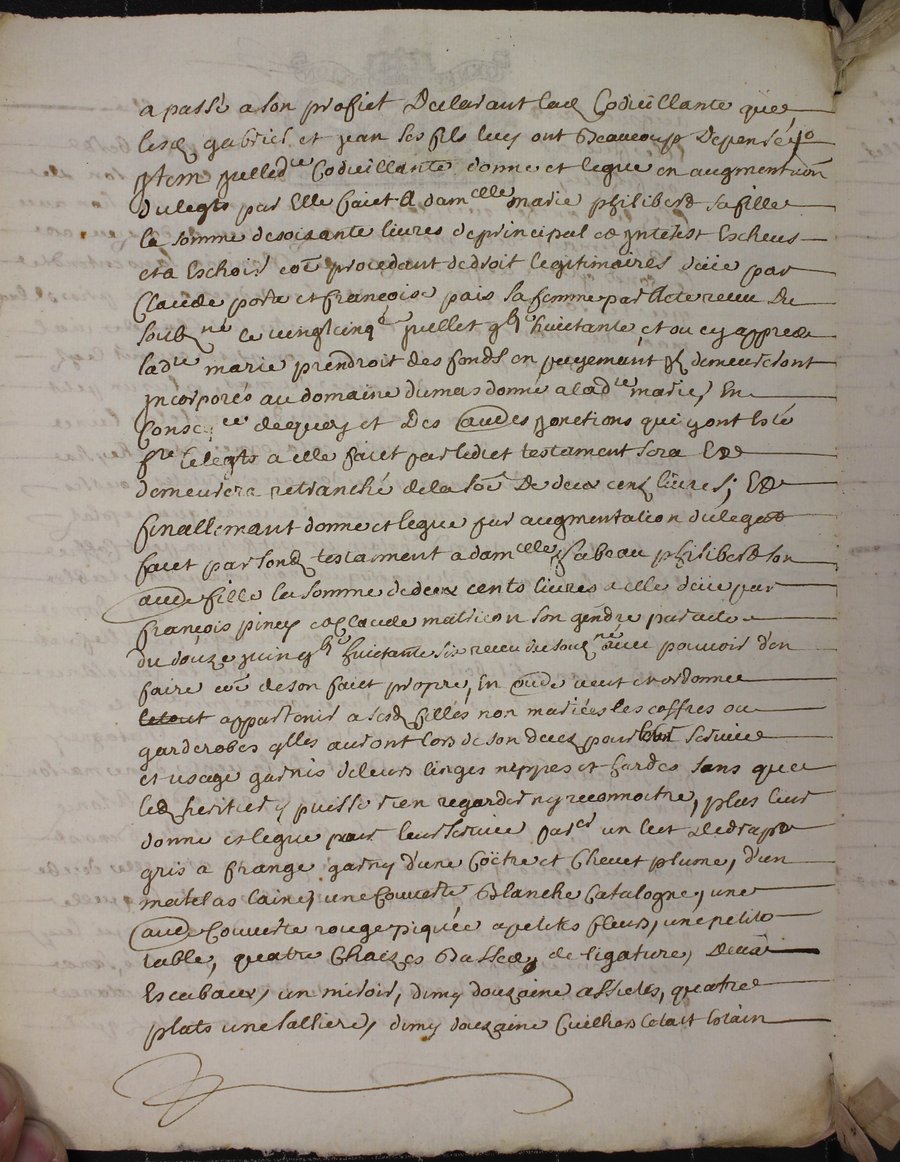 a passé a son profict Declarant lad Codicillante que
lesd gabriel et jean ses fils luy ont Beaucoup Depensé,
ytem jcelled.te Codicillante donne et legue en augmentaon
du legts par Elle faict a dam.elle marie philiberd sa fille
la somme de soixante livres de principal et jnterest Escheus
et a Eschoir come procedant de droit legitimaires dûe par
Claude porta et françoise pais sa femme par acte receu du
soub.né le vingt cinq.e juillet huictante et ou cy apprés
lad.te marie prendroit des fonds en payemant jls demeureront
jncorporés au domaine du mas donné a lad.te marie, En
Conseq.ce dequoy et Des aud.es jonctions qui y ont esté
f.te le legts a elle faict par ledict testament sera Et
demeurera retranché de la so.e De deux cens livres; Et
finallemant donne et legue par augmentation du legat
faict par sond testament a dam.elle jsabeau philiberd son
au.de fille la somme de deux cents livres a elle dûe par
françois piney et claude matricon son gendre par acte
du douze juin huictante six receu du soub.né avec pouvoir d'en
faire co.e de son faict propre, En au.de veut et ordonne
le tout appartenir a sesd filles non mariées les coffres ou
garderobes qlles auront lors de son decez pour leur service
et usage garnis de leurs linges nippes et hardes sans que
led heritier y puisse rien regarder ny reconnoitre, plus leur
donne et legue pour leur service un lict de drap
gris a frange garny d'une Coëtre et Chevet plume, d'un
matelas laine, une Couverte Blanche Catalogne, une
au.de Couverte rouge piquée a petits fleurs, une petite
table, quatre Chaizes Basses de ligature, Deux
Escabaux, un miroir, dimy douzaine assietes, quatre
plats une salliere, dimy douzaine Cuilhers le tout Estain